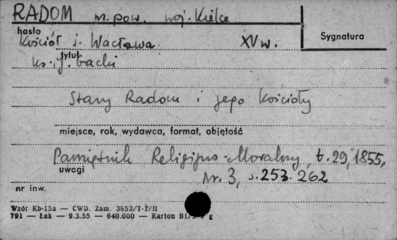 RADOM m. pow. woj. Kielce
hasło
Sygnatura
Kościół ś. Wacława XV w.
tytuł
ks. J. Gacki
Stary Radom i jego kościoły
miejsce, rok, wydawca, format, objętość
Pamiętnik Religijno-Moralny, t. 29, 1855,
uwagi
Nr. 3, s. 253-262
nr inw.
Wzór Kb-15a — CWD. Zam. 3652/T-IVII
791 — Łsk — 9.3.55 — 640.000 — Karton